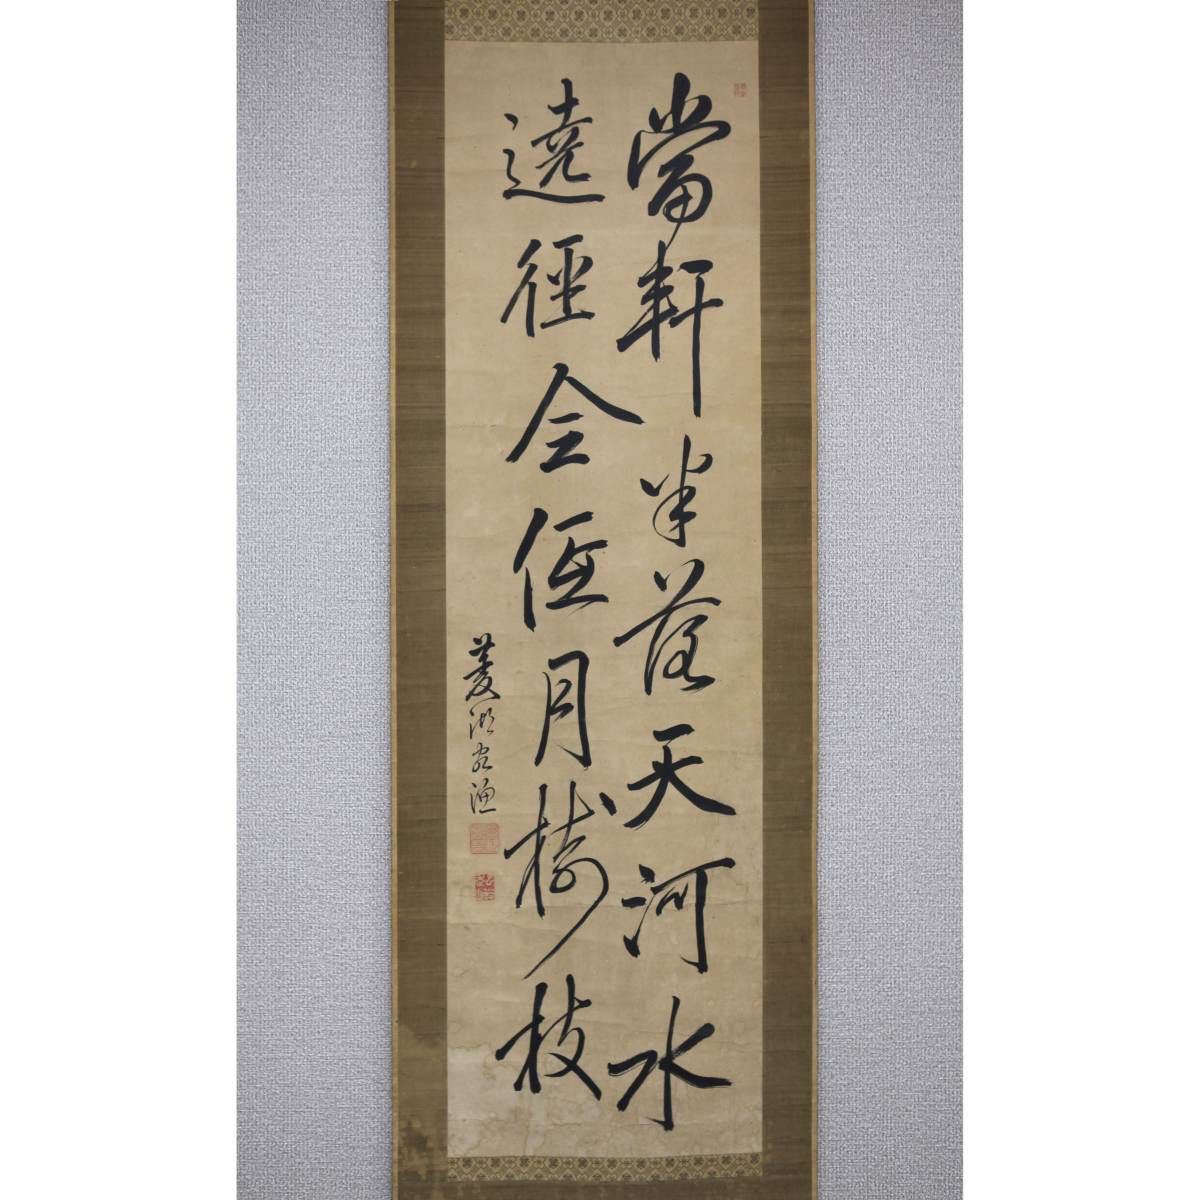 當軒半落天河水
遶徑全低月樹枝
菱湖老漁